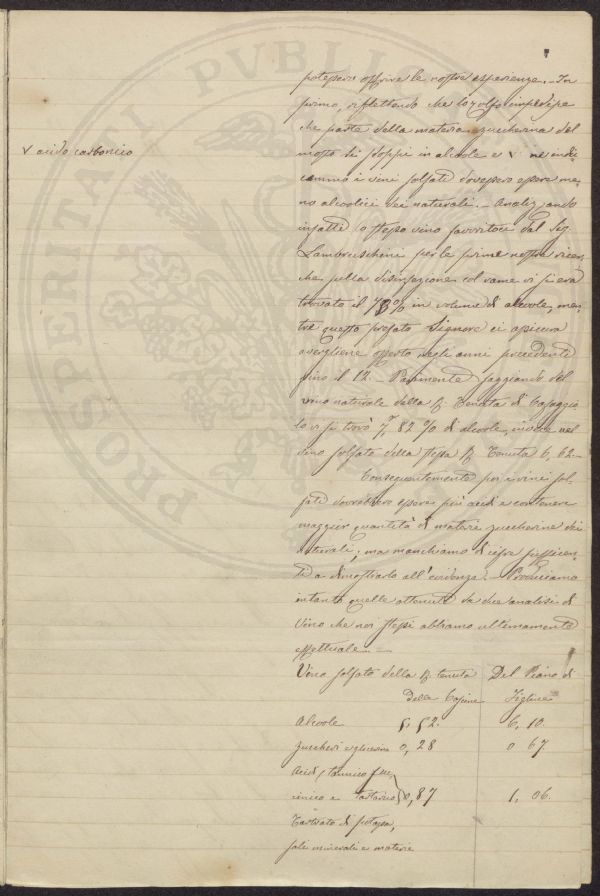 potessero offrire le nostre esperienze. – In
primo, riflettendo che lo zolfo impedisce
che parte della materia zuccherina del
v acido carbonico
mosto si sdoppi in alcoole e v ne indi
cammo i vini solfati dovessero essere me-
no alcoolici dei naturali. – Analizzando
infatti lo stesso vino favoritoci dal Sig.
Lambruschini per le prime nostre ricer-
che sulla disinfezione col rame vi si era
trovato il 7,8% in volume di alcoole, men-
tre questo prefato Signore ci assicura
avergliene offerto negli anni precedenti
fino il 12. – Parimente saggiando del
vino naturale della R. Tenuta di Cafaggio
lo vi si trovò 7,82 % di alcoole, invece nel
vino solfato della stessa R. Tenuta 6,62 –
Conseguentemente poi i vini sol-
fati dovrebbero essere più acidi e contenere
maggior quantità di materie zuccherine dei
naturali; ma manchiamo di cifre sufficen-
ti a dimostrarlo all'evidenza. – Produciamo
intanto quelle ottenute da due analisi di
Vino che noi stessi abbiamo ultimamente
effettuate. –
Vino solfato della R. tenuta Del Piano di
delle Cascine Figline
Alcoole 5,52. 6,10.
zuccheri e glicerina 0,28 0 67
Acidi (tannico suc-
cinico e tartarico) 0,87 1,06.
Tartrato di potassa,
sali minerali e materie